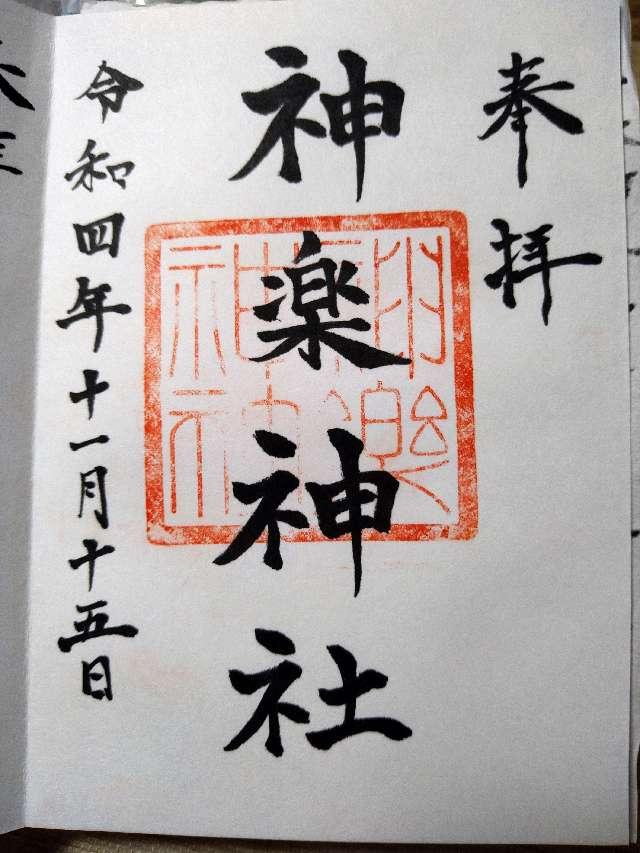 奉拝
神楽神社
令和四年十一月十五日